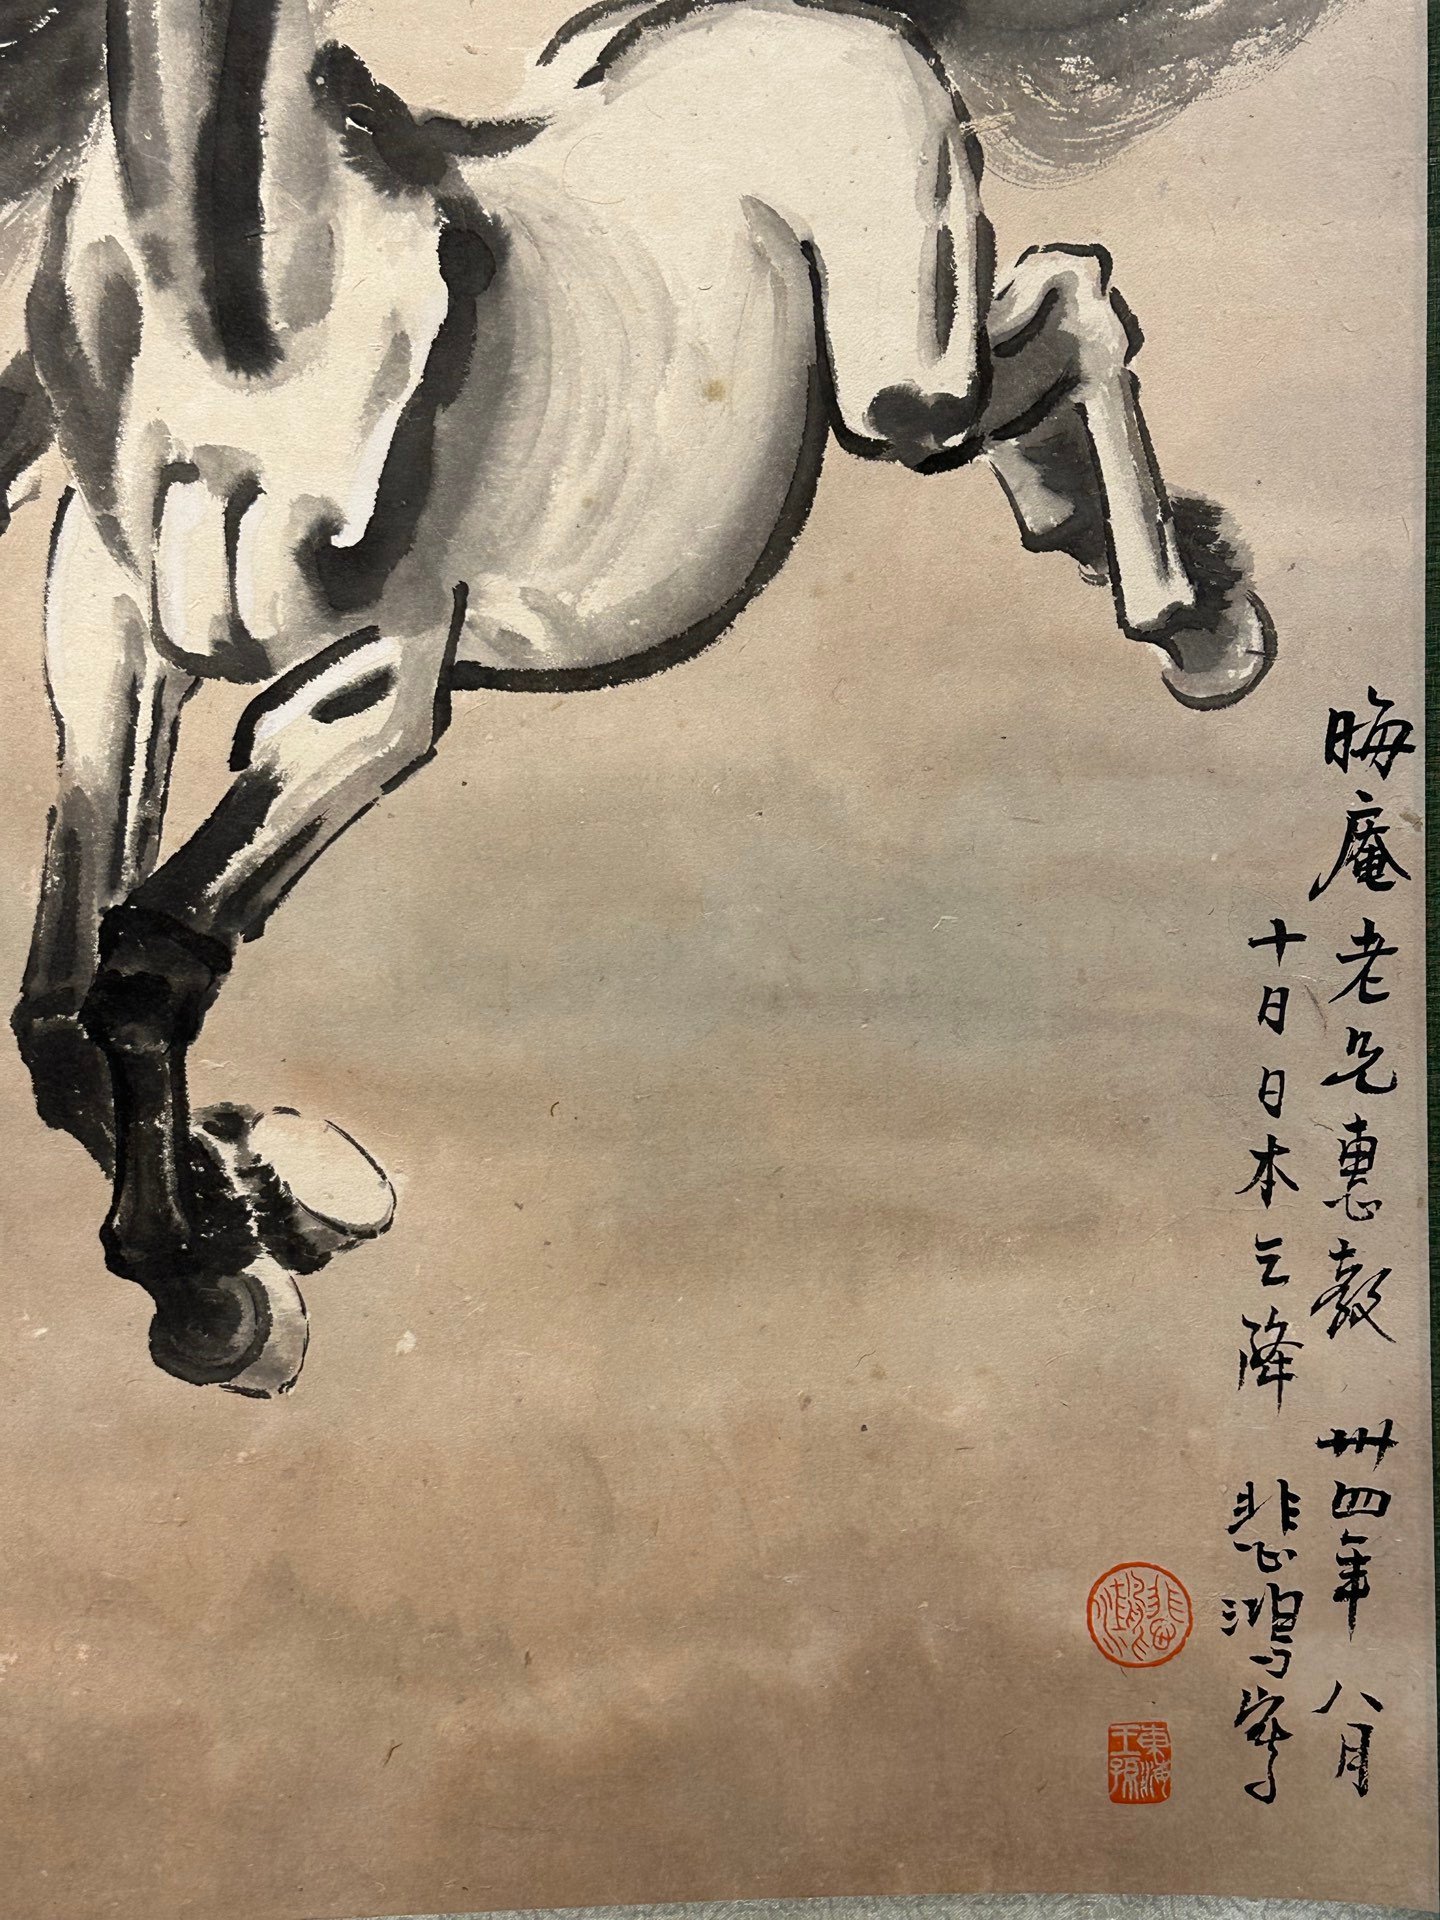 晦庵老兄惠教 卅四年八月
十日日本乞降 悲鴻寫
悲鴻
東海王孫